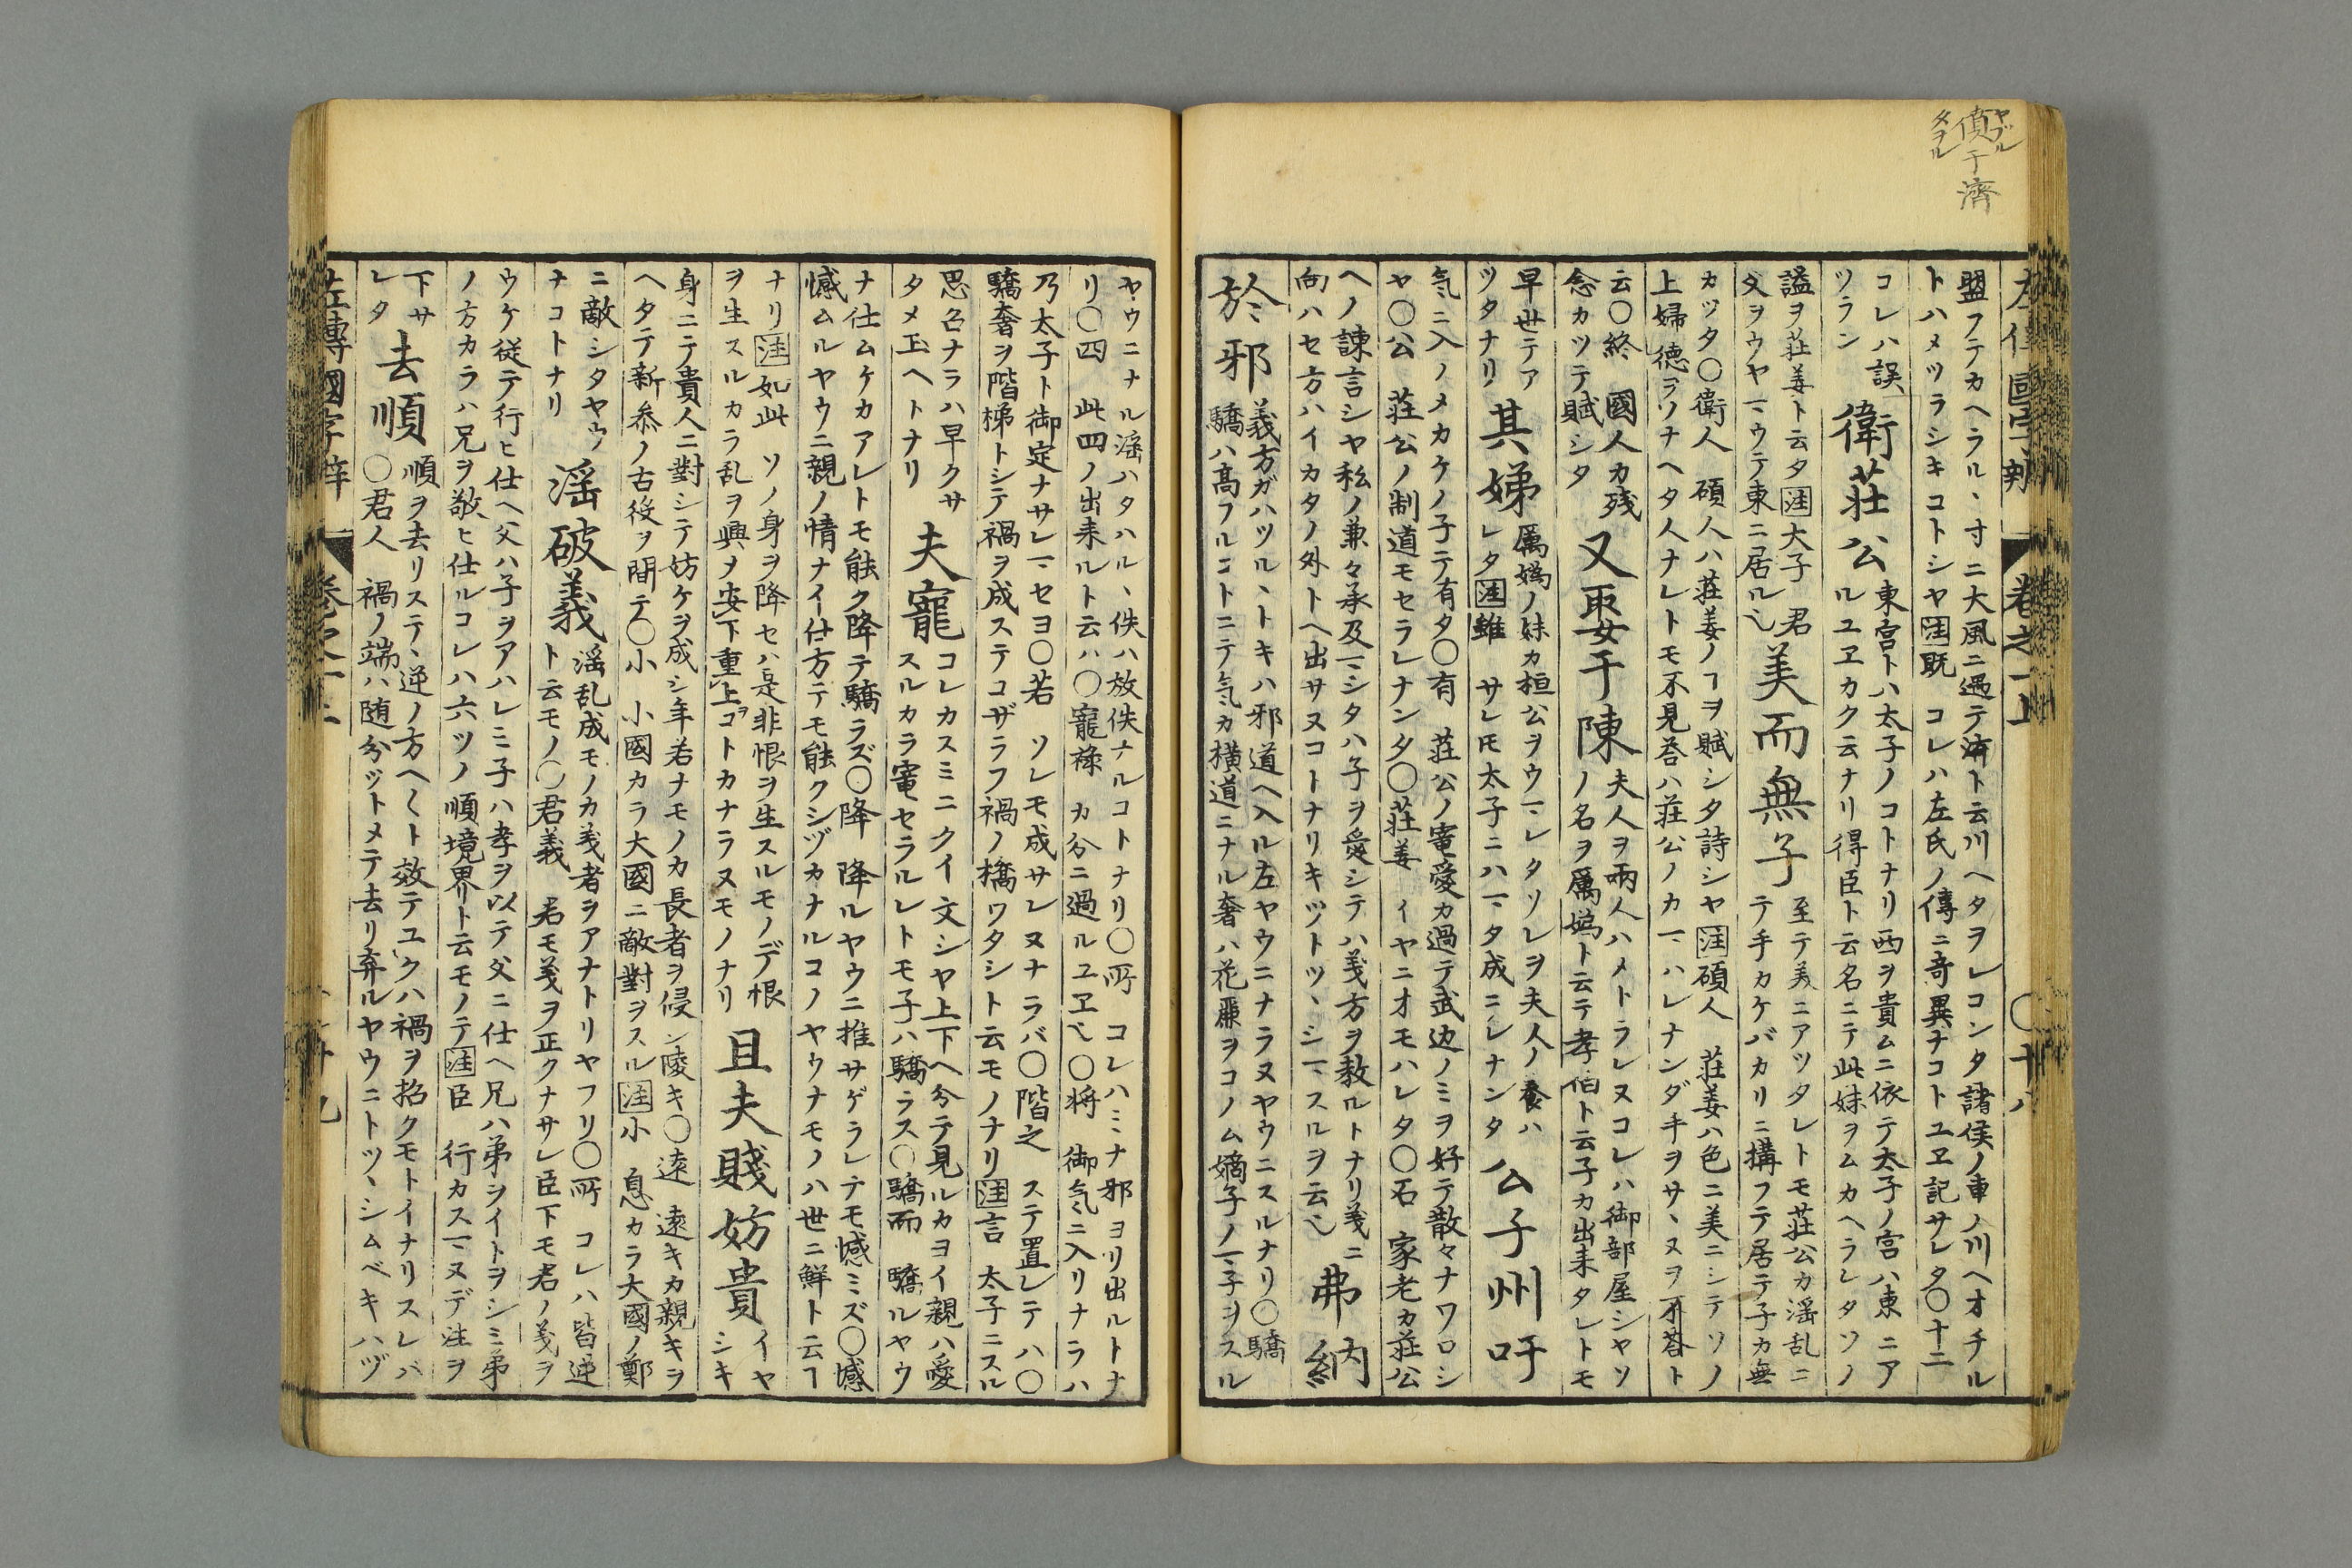 ヤブル
僨于濟
タヲル
左傳國字辨 卷之一上 〇十八
盟フテカヘラル、寸ニ大風ニ遇テ濟ト云川ヘタヲレコンタ諸侯ノ車ノ川ヘオチル
トハメツラシキコトシヤ注既 コレハ左氏ノ傳ニ奇異ナコトユヱ記サレタ〇十二
コレハ誤
ツラン
衛荘公
東宮トハ太子ノコトナリ西ヲ貴ムニ依テ太子ノ宮ハ東ニア
ルユヱカク云ナリ得臣ト云名ニテ此妹ヲムカヘラレタソノ
謚ヲ荘姜ト云タ注大子 君
父ヲウヤマウテ東ニ居ル也
美而無子
至テ美ニアツタレトモ荘公カ滛乱ニ
テ手カケバカリニ搆フテ居テ子カ無
カツタ〇衛人 碩人ハ荘姜ノヿヲ賦シタ詩シヤ注碩人 荘姜ハ色ニ美ニシテソノ
上婦徳ヲソナヘタ人ナレトモ不見荅ハ荘公ノカマハレナンダ手ヲサヽヌヲ不荅ト
云〇終 國人カ残
念カツテ賦シタ
又娶于陳
夫人ヲ兩人ハメトラレヌコレハ御部屋シヤソ
ノ名ヲ厲嬀ト云テ孝伯ト云子カ出来タレトモ
早世テア
ツタナリ
其娣
厲嬀ノ妹カ桓公ヲウマレタソレヲ夫人ノ養ハ
レタ注雖 サレ𪜈太子ニハマタ成ニレナンタ
公子州吁
気ニ入ノメカケノ子テ有タ〇有 荘公ノ寵愛カ過テ武边ノミヲ好テ散々ナワロシ
ヤ〇公 荘公ノ制道モセラレナンタ〇荘姜 イヤニオモハレタ〇石 家老カ荘公
ヘノ諌言シヤ私ノ兼々承及マシタハ子ヲ愛シテハ義方ヲ教ルトナリ義ニ
向ハセ方ハイカタノ外トヘ出サヌコトナリキツトツヽシマスルヲ云也
弗納
於邪
義方ガハツルヽトキハ邪道ヘ入ル左ヤウニナラヌヤウニスルナリ〇驕
驕ハ高フルコトニテ気カ横道ニナル奢ハ花麗ヲコノム嫡子ノマ子ヲスル
ヤウニナル滛ハタハルヽ佚ハ放佚ナルコトナリ〇所 コレハミナ邪ヨリ出ルトナ
リ〇四 此四ノ出来ルト云ハ〇寵祿 カ分ニ過ルユヱ也〇将 御気ニ入リナラハ
乃太子ト御定ナサレマセヨ〇若 ソレモ成サレヌナラバ〇階之 ステ置レテハ〇
驕奢ヲ階梯トシテ禍ヲ成ステコザラフ禍ノ橋ワタシト云モノナリ注言 太子ニスル
思召ナラハ早クサ
タメ玉ヘトナリ
夫寵
コレカスミニクイ文シヤ上下ヘ分テ見ルカヨイ親ハ愛
スルカラ寵セラルレトモ子ハ驕ラス〇驕而 驕ルヤウ
ナ仕ムケカアレトモ能ク降テ驕ラズ〇降 降ルヤウニ推サゲラレテモ憾ミズ〇憾
憾ムルヤウニ親ノ情ナイ仕方テモ能クシヅカナルコノヤウナモノハ世ニ鮮ト云ヿ
ナリ注如此 ソノ身ヲ降セハ是非恨ヲ生スルモノデ根
ヲ生スルカラ乱ヲ興ヲ安下重上ヲコトカナラヌモノナリ
且夫賤妨貴
イヤ
シキ
身ニテ貴人ニ對シテ妨ケヲ成シ年若ナモノカ長者ヲ侵シ陵キ〇遠 遠キカ親キヲ
ヘタテ新叅ノ古役ヲ間テ〇小 小國カラ大國ニ敵對ヲスル注小 息カラ大國ノ鄭
ニ敵シタヤウ
ナコトナリ
滛破義
滛乱成モノカ義者ヲアナトリヤフリ〇所 コレハ皆逆
ト云モノ〇君義 君モ義ヲ正クナサレ臣下モ君ノ義ヲ
ウケ從テ行ヒ仕ヘ父ハ子ヲアハレミ子ハ孝ヲ以テ父ニ仕ヘ兄ハ弟ヲイトヲシミ弟
ノ方カラハ兄ヲ敬ヒ仕ルコレハ六ツノ順境界ト云モノテ注臣 行カスマヌデ注ヲ
下サ
レタ
去順
順ヲ去リステヽ逆ノ方ヘ〱ト效テユクハ禍ヲ招クモトイナリスレバ
〇君人 禍ノ端ハ随分ツトメテ去リ弃ルヤウニトツヽシムベキハヅ
左傳國字辨 卷之一上 十九